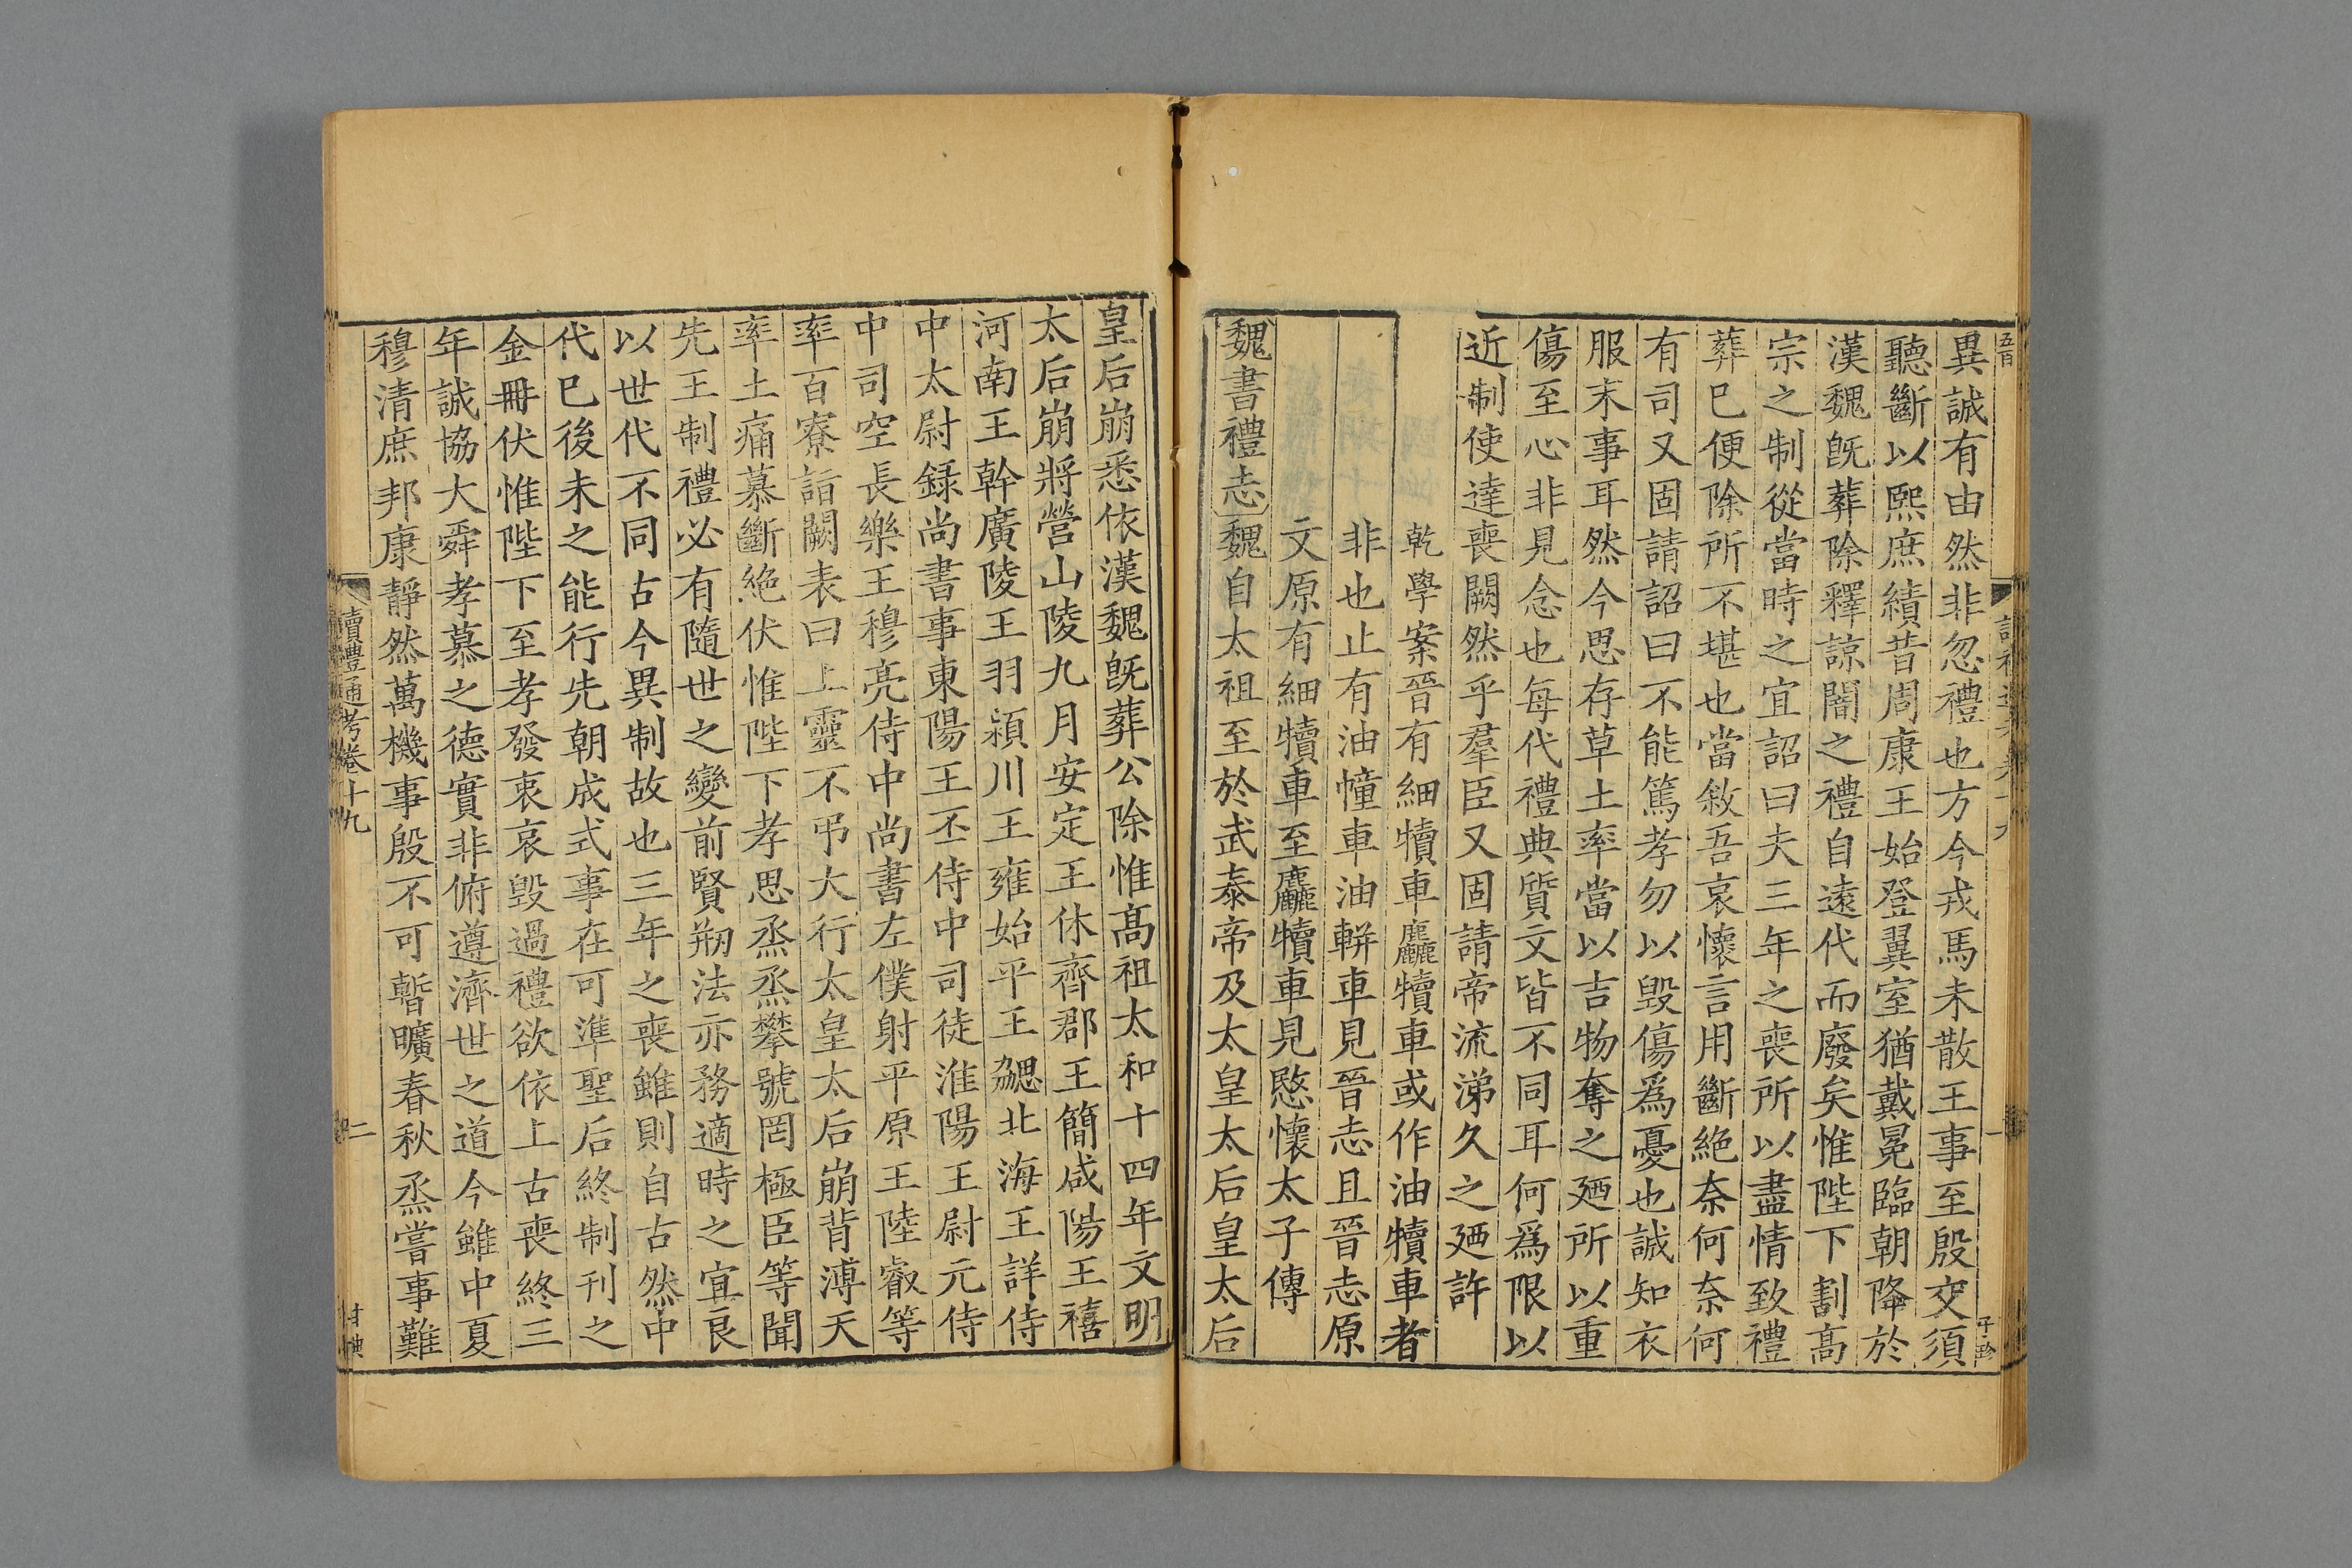 五百
異誠有由然非忽禮也方今戎馬未散王事至殷交須
聽斷以熙庶績昔周康王始登翼室猶戴冕臨朝降於
漢魏旣葬除釋諒闇之禮自遠代而廢矣惟陛下割高
宗之制從當時之宜詔曰夫三年之喪所以盡情致禮
葬已便除所不堪也當敘吾哀懷言用斷絶奈何奈何
有司又固請詔曰不能篤孝勿以毀傷爲憂也誠知衣
服末事耳然今思存草土率當以吉物奪之廼所以重
傷至心非見念也每代禮典質文皆不同耳何爲限以
近制使達喪闕然乎羣臣又固請帝流涕久之廼許
乾學案晉有細犢車麤犢車或作油犢車者
非也止有油幢車油軿車見晉志且晉志原
文原有細犢車至麤犢車見愍懷太子傳
魏書禮志魏自太祖至於武泰帝及太皇太后皇太后
皇后崩悉依漢魏旣葬公除惟高祖太和十四年文明
太后崩將營山陵九月安定王休齊郡王簡咸陽王禧
河南王幹廣陵王羽潁川王雍始平王勰北海王詳侍
中太尉録尚書事東陽王丕侍中司徒淮陽王尉元侍
中司空長樂王穆亮侍中尚書左僕射平原王陸叡等
率百寮詣闕表曰上靈不弔大行太皇太后崩背溥天
率土痛慕斷絶伏惟陛下孝思烝烝攀號罔極臣等聞
先王制禮必有隨世之變前賢剏法亦務適時之宜良
以世代不同古今異制故也三年之喪雖則自古然中
代已後未之能行先朝成式事在可準聖后終制刊之
金冊伏惟陛下至孝發衷哀毀過禮欲依上古喪終三
年誠協大舜孝慕之德實非俯遵濟世之道今雖中夏
穆清庶邦康靜然萬機事殷不可暫曠春秋烝嘗事難
讀禮通考卷十九
二